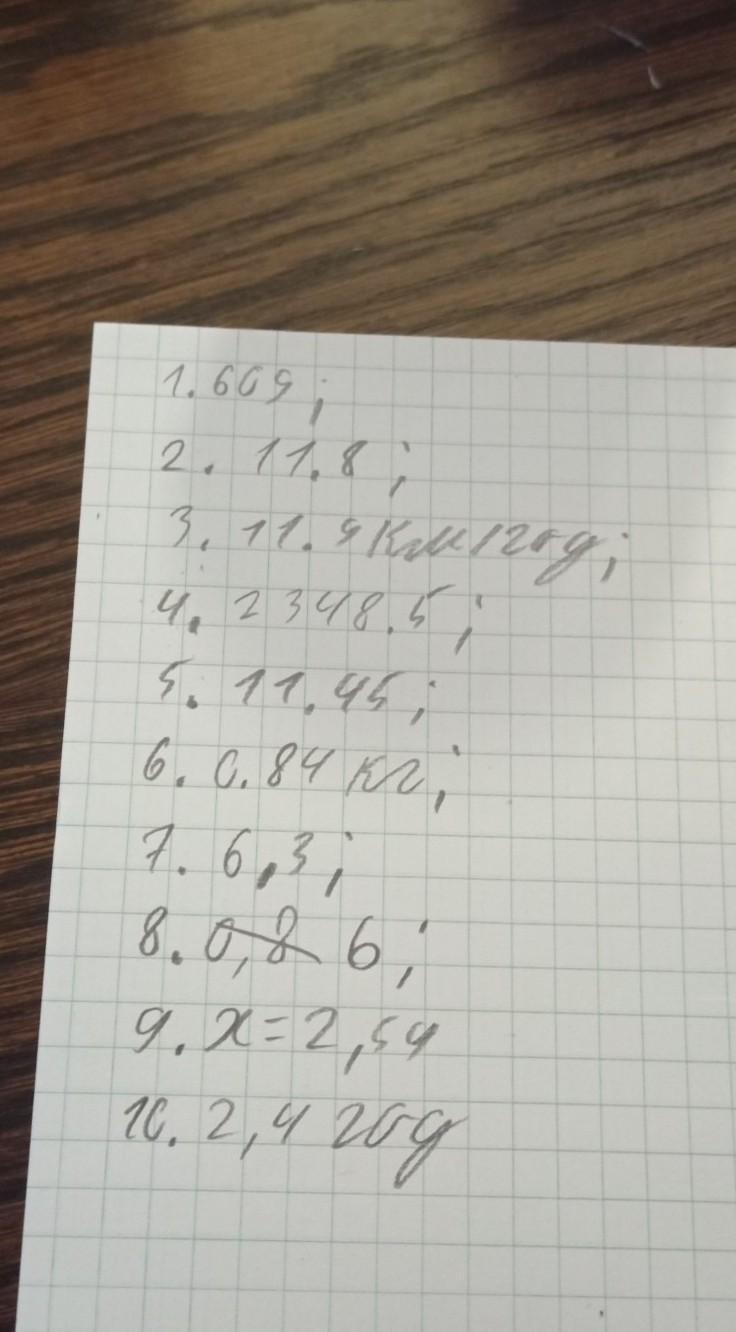 1. 609;
2. 11.8;
3. 11.9 км/год;
4. 2348.5;
5. 11.45;
6. 0.84 кг;
7. 6,3;
8. 0,8 6;
9. x=2,54
10. 2,4 год